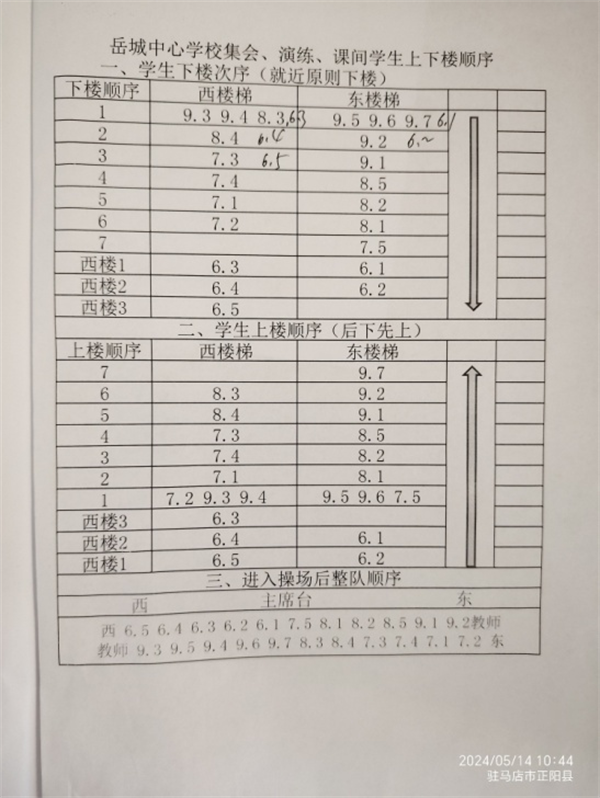 岳城中心学校集会、演练、课间学生上下楼顺序
一、学生下楼次序（就近原则下楼）
下楼顺序 西楼梯 东楼梯
1 9.3 9.4 8.3,6.3 9.5 9.6 9.7 6.1
2 8.4 6.4 9.2 6.2
3 7.3 6.5 9.1
4 7.4 8.5
5 7.1 8.2
6 7.2 8.1
7 7.5
西楼1 6.3 6.1
西楼2 6.4 6.2
西楼3 6.5
二、学生上楼顺序（后下先上）
上楼顺序 西楼梯 东楼梯
7 9.7
6 8.3 9.2
5 8.4 9.1
4 7.3 8.5
3 7.4 8.2
2 7.1 8.1
1 7.2 9.3 9.4 9.5 9.6 7.5
西楼3 6.3
西楼2 6.4 6.1
西楼1 6.5 6.2
三、进入操场后整队顺序
西 主席台 东
西 6.5 6.4 6.3 6.2 6.1 7.5 8.1 8.2 8.5 9.1 9.2教师
教师 9.3 9.5 9.4 9.6 9.7 8.3 8.4 7.3 7.4 7.1 7.2 东
2024/05/14 10:44
驻马店市正阳县